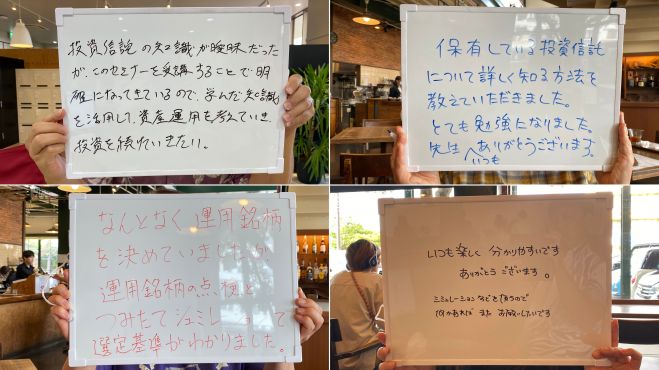 投資信託の知識が曖昧だった
が、このセミナーを受講することで明
確になってきているので、学んだ知識
を活用して、資産運用を考えていき、
投資を続けていきたい。
保有している投資信託
について詳しく知る方法を
教えていただきました。
とても勉強になりました。
先生いつもありがとうございます。
なんとなく運用銘柄
を決めていましたが
運用銘柄の点検と
つみたてシュミレーションで
選定基準がわかりました。
いつも楽しく 分かりやすいです
ありがとう ございます。
シミュレーション なども使うので
何かあれば また お願いしたいです